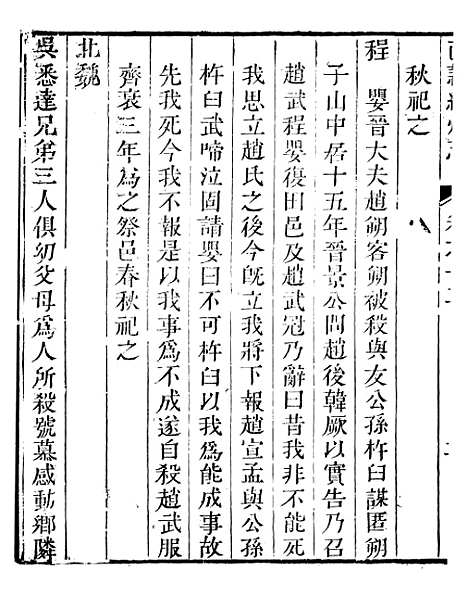 秋祀之
程　嬰晉大夫趙朔客朔被殺與友公孫杵臼謀匿朔
子山中居十五年晉景公問趙後韓厥以實告乃召
趙武程嬰復田邑及趙武冠乃辭曰昔我非不能死
我思立趙氏之後今旣立我將下報趙宣孟與公孫
杵臼武啼泣固請嬰曰不可杵臼以我爲能成事故
先我死今我不報是以我事爲不成遂自殺趙武服
齊衰三年爲之祭邑春秋祀之
北魏
吳悉達兄弟三人俱幼父母爲人所殺號慕感動鄉隣